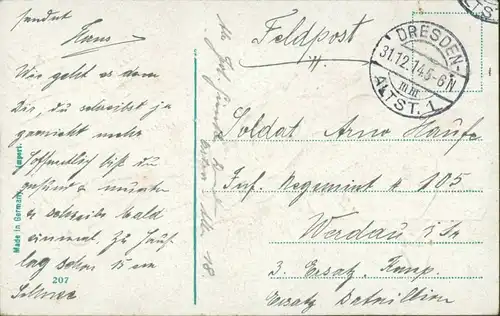 sendet
Hans
Wie geht es denn
Dir, du schreibst ja
garnicht mehr
Hoffentlich bist du
gesund & munter
& schreibst bald
einmal.
15 cm
Schnee
Made in Germany. Import.
207
Feldpost
DRESDEN-
31.12.14.5-6N
ALTST. 1
Soldat Arno Haufe
Inf. Regiment № 105
Werdau i/Sa
3. Ersatz Komp.
Ersatz Bataillion